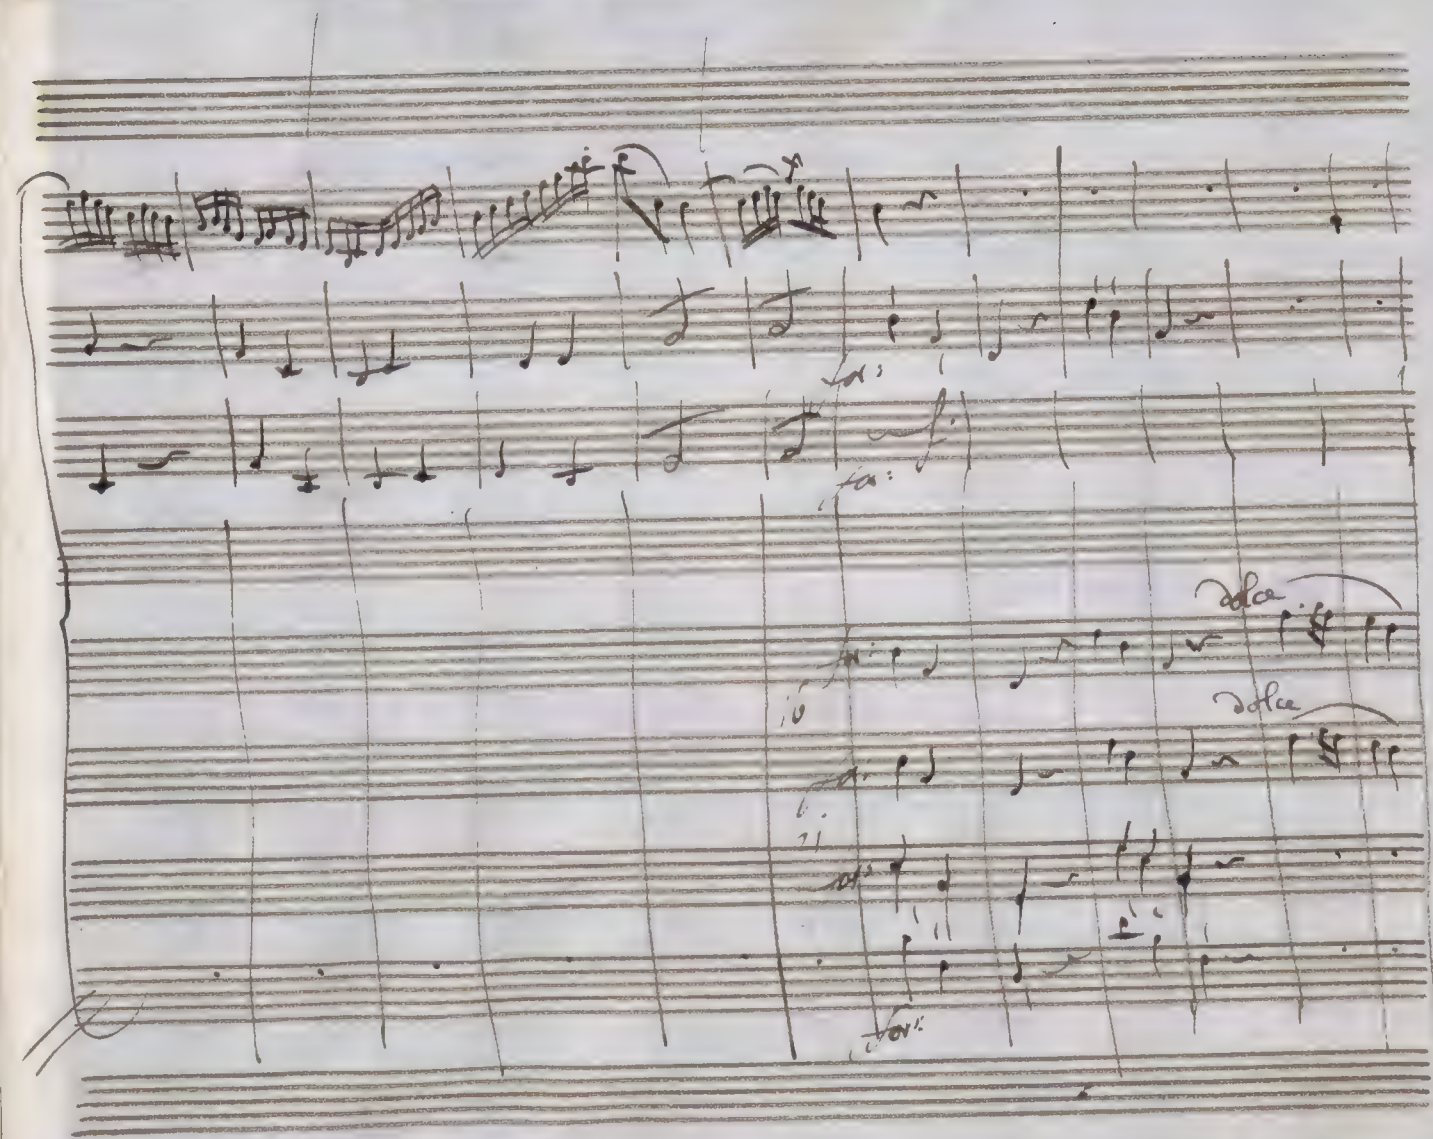 for:
for:
dolce
for:
dolce
for:
for:
for: